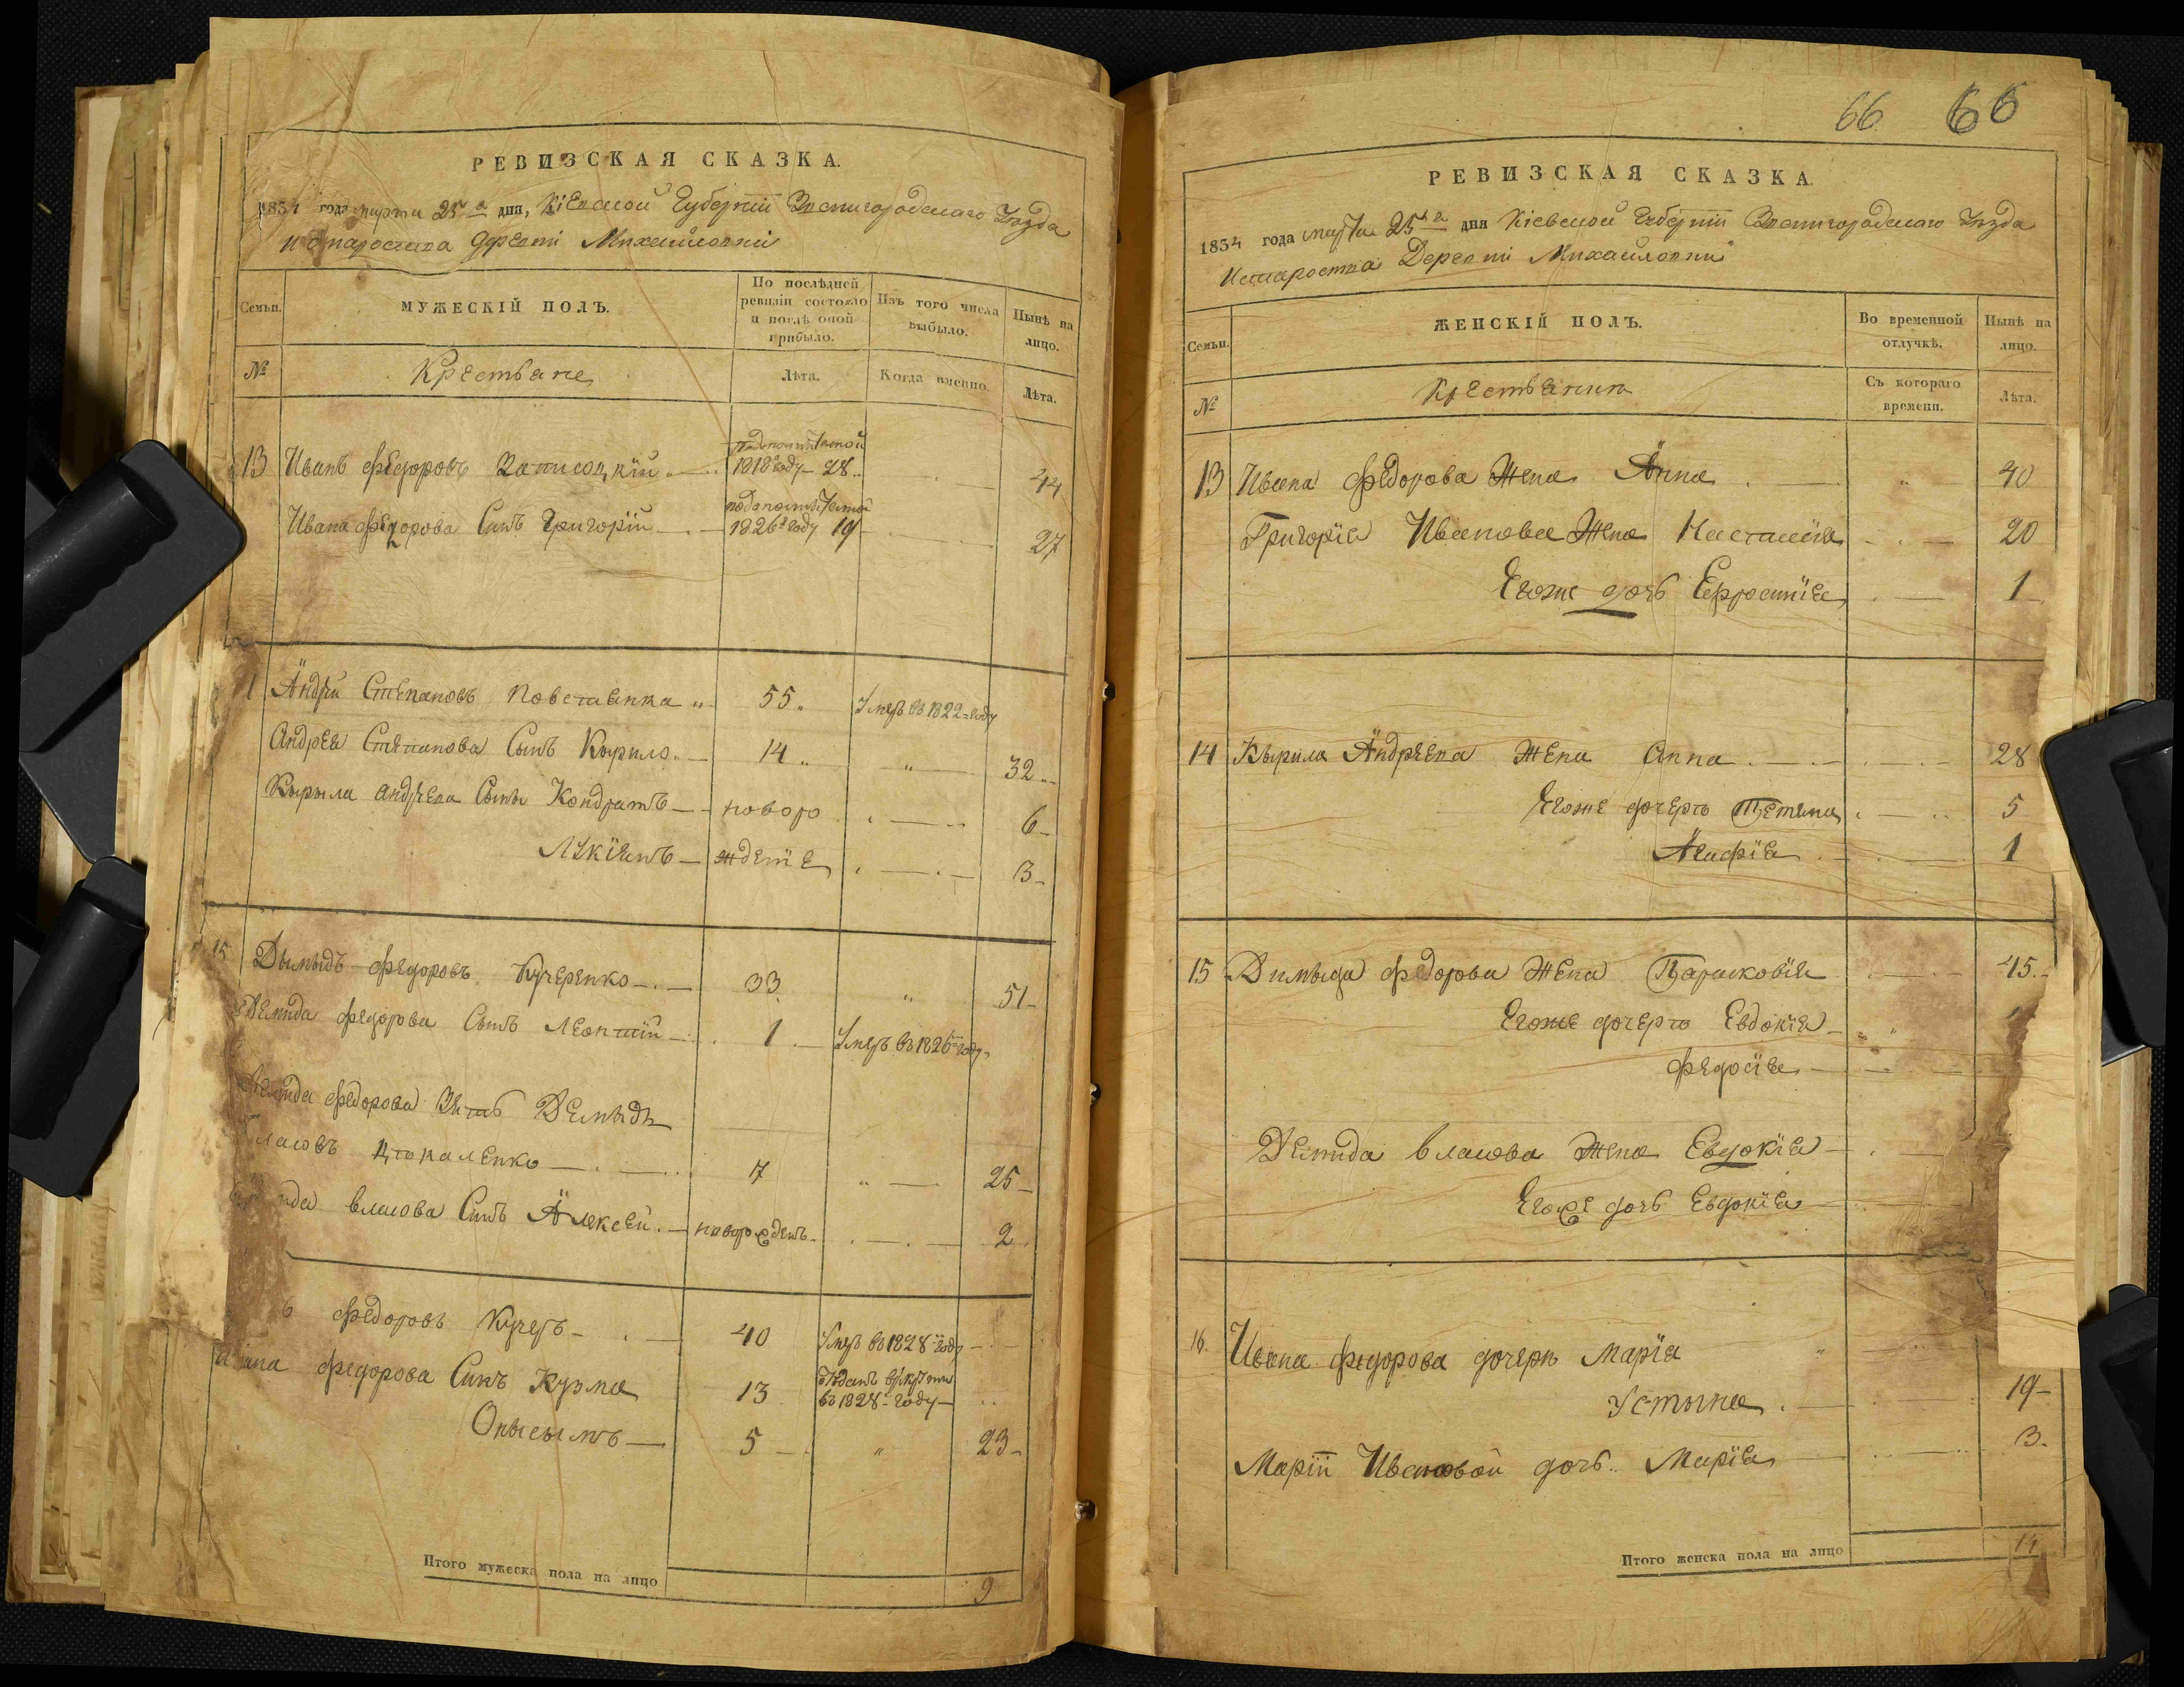 РЕВИЗСКАЯ СКАЗКА.
1834 года марта 25го дня, Кіевской Губерніи Звенигородскаго Уѣзда
Деревни Михайловки
Семьи.
МУЖЕСКІЙ ПОЛЪ.
По послѣдней ревизіи состояло и послѣ оной прибыло.
Изъ того числа выбыло.
Нынѣ на лицо.
№
Крестьяне
Лѣта.
Когда именно.
Лѣта.
13 Иванъ Федоровъ 1818 году – 28 44
Ивана Федорова Сынъ Григорій 1826 году 19 27
Андрѣй Степановъ 55 Умеръ въ 1822 году
Андрея Степанова Сынъ Кырило 14 „ 32
Кырыла Андрѣева Сыны Кондратъ новоро 6
Лукіянъ ждение 3
15 Дымыдъ Федоровъ Кучеренко 33 „ 51
Демида Федорова Сынъ Леонтій 1 Умеръ въ 1826 году
Федорова Зять Демыдъ
Цюкаленко 7 „ 25
власова Сынъ Алексѣй новорожденъ 2
Федоровъ Кучеръ 40 Умеръ въ 1828 году
Федорова Сынъ Кузма 13 Отданъ въ рекруты въ 1828 году
Онысымъ 5 „ 23
Итого мужеска пола на лицо 9
66 66
РЕВИЗСКАЯ СКАЗКА.
1834 года марта 25го дня Кіевской Губерніи Звенигородскаго Уѣзда
Деревни Михайловки
Семьи.
ЖЕНСКІЙ ПОЛЪ.
Во временной отлучкѣ.
Нынѣ на лицо.
№
Крестьянки
Съ котораго времени.
Лѣта.
13 Ивана Федорова Жена Анна „ 40
Григорія Иванова Жена Настасія 20
Егоже дочь Ефросинія 1
14 Кырила Андрѣева Жена Анна 28
Егоже дочеръ Тетяна 5
Агафія 1
15 Димыда Федорова Жена Парасковія 45
Егоже дочеръ Евдокія
Федосія
Демида власова Жена Евдокія
Егоже дочь Евдокія
16. Ивана Федорова дочери Марія „
Устына 19
Маріи Ивановой дочь Марія 3
Итого женска пола на лицо 14